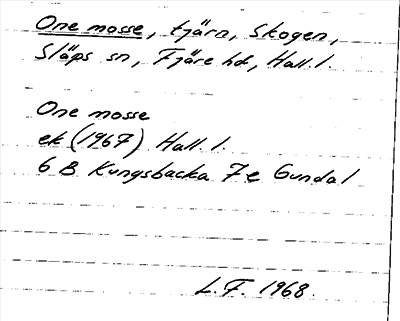 One mosse, tjärn, Skogen,
Släps sn, Fjäre hd, Hall. l.
One mosse
ek (1967) Hall. l.
6 B Kungsbacka 7e Gundal
L.F. 1968.